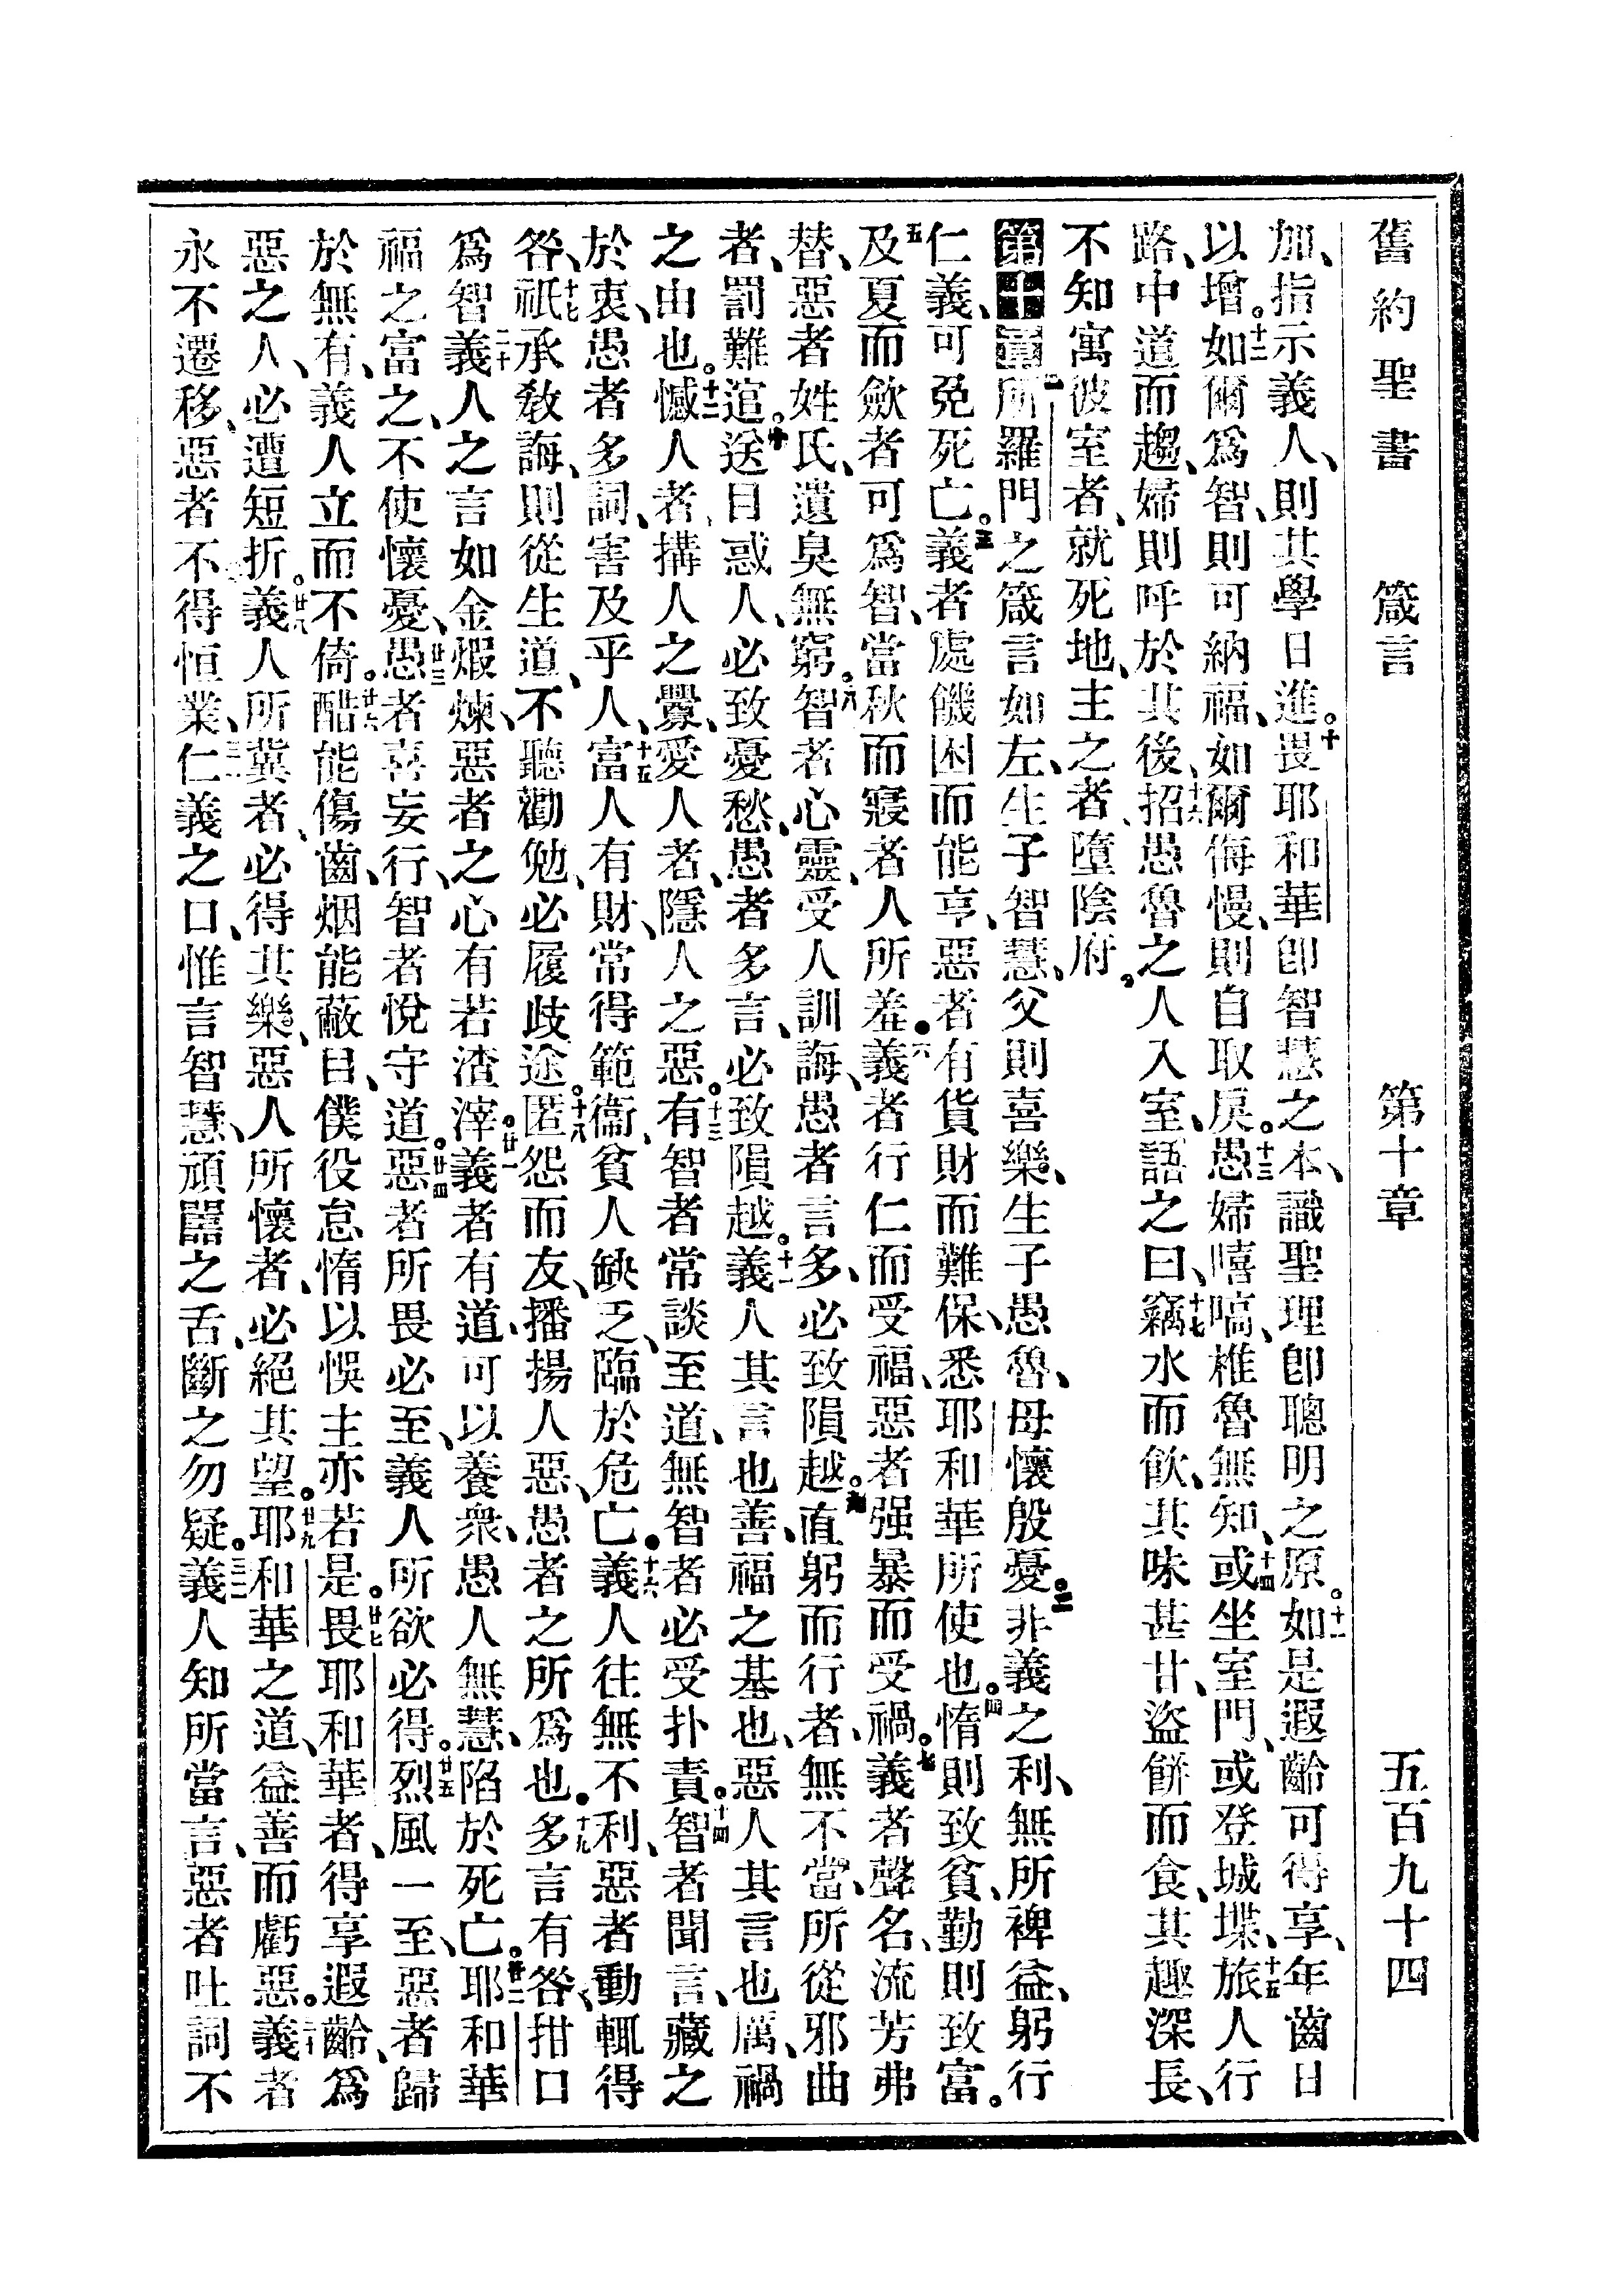 舊約聖書 箴言 第十章 五百九十四
加、指示義人、則其學日進。十畏耶和華卽智慧之本、識聖理卽聰明之原。十一如是遐齡可得享、年齒日
以增。十二如爾爲智、則可納福、如爾侮慢、則自取戾。十三愚婦嘻嗃、椎魯無知、十四或坐室門、或登城堞、十五旅人行
路、中道而趨、婦則呼於其後、十六招愚魯之人入室、語之曰、十七竊水而飮、其味甚甘、盜餅而食、其趣深長、
不知寓彼室者、就死地、主之者、墮陰府。
第十章一所羅門之箴言如左、生子智慧、父則喜樂、生子愚魯、母懷殷憂。二非義之利、無所裨益、躬行
仁義、可免死亡。三義者處饑困而能亨、惡者有貨財而難保、悉耶和華所使也。四惰則致貧、勤則致富。
五及夏而斂者、可爲智、當秋而寢者、人所羞。六義者行仁而受福、惡者强暴而受禍。七義者聲名、流芳弗
替、惡者姓氏、遺臭無窮。八智者心靈、受人訓誨、愚者言多、必致隕越。九直躬而行者、無不當、所從邪曲
者、罰難逭。十送目惑人、必致憂愁、愚者多言、必致隕越。十一義人其言也善、福之基也、惡人其言也厲、禍
之由也。十二憾人者、搆人之釁、愛人者、隱人之惡。十三有智者常談至道、無智者必受扑責。十四智者聞言、藏之
於衷、愚者多詞、害及乎人、十五富人有財、常得範衞、貧人缺乏、臨於危亡。十六義人往無不利、惡者動輒得
咎、十七祇承敎誨、則從生道、不聽勸勉、必履歧途。十八匿怨而友、播揚人惡、愚者之所爲也。十九多言有咎、拑口
爲智、二十義人之言如金煆煉、惡者之心有若渣滓。廿一義者有道、可以養衆、愚人無慧、陷於死亡。廿二耶和華
福之富之、不使懷憂、廿三愚者喜妄行、智者悅守道。廿四惡者所畏必至、義人所欲必得。廿五烈風一至、惡者歸
於無有、義人立而不倚。廿六酷能傷齒、烟能蔽目、僕役怠惰以悞主亦若是。廿七畏耶和華者、得享遐齡、爲
惡之人、必遭短折。廿八義人所冀者、必得其樂、惡人所懷者、必絕其望。廿九耶和華之道、益善而虧惡。三十義者
永不遷移、惡者不得恒業、三一仁義之口、惟言智慧、頑嚚之舌、斷之勿疑。三二義人知所當言、惡者吐詞不